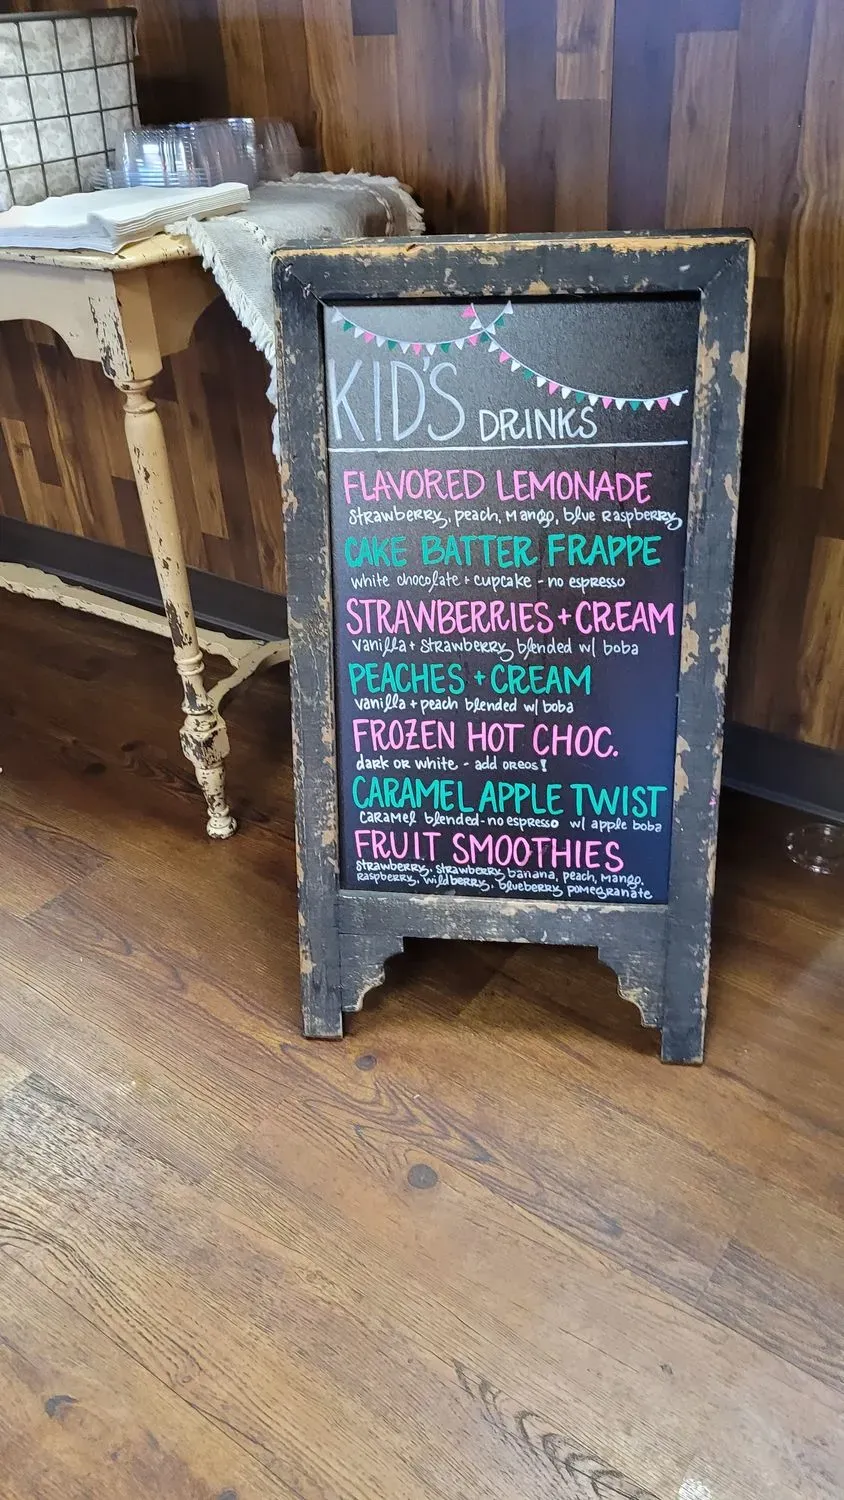 KID'S DRINKS
FLAVORED LEMONADE
strawberry, peach, mango, blue raspberry
CAKE BATTER FRAPPE
white chocolate + cupcake - no espresso
STRAWBERRIES + CREAM
vanilla + strawberry blended w/ boba
PEACHES + CREAM
vanilla + peach blended w/ boba
FROZEN HOT CHOC.
dark or white - add oreos!
CARAMEL APPLE TWIST
caramel blended - no espresso w/ apple boba
FRUIT SMOOTHIES
strawberry, strawberry banana, peach, mango,
raspberry, wildberry, blueberry pomegranate